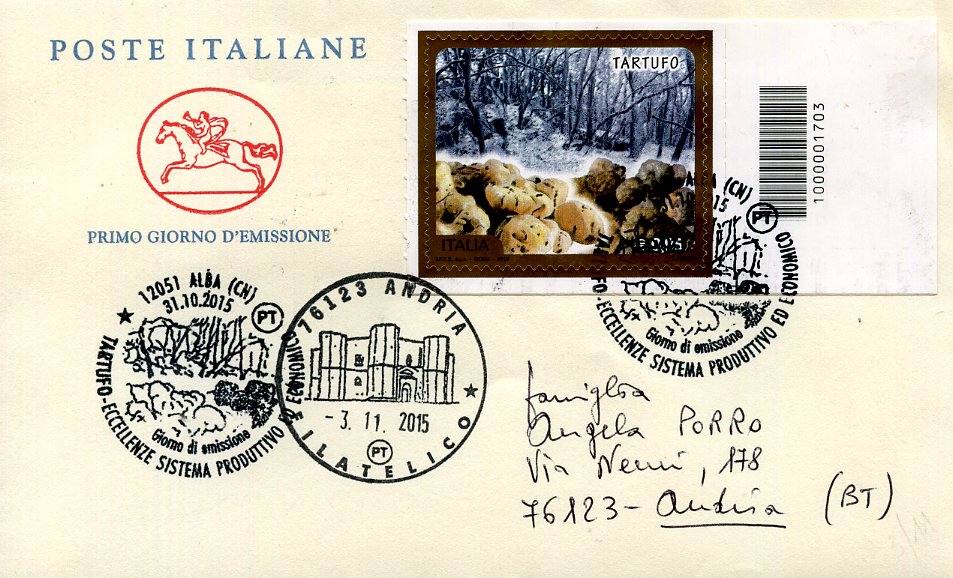 POSTE ITALIANE
PRIMO GIORNO D'EMISSIONE
TARTUFO
ITALIA
1000001703
12051 ALBA (CN)
31.10.2015
PT
Giorno di emissione
TARTUFO-ECCELLENZE SISTEMA PRODUTTIVO ED ECONOMICO
76123 ANDRIA
- 3. 11. 2015
PT
FILATELICO
ALBA (CN)
PT
Giorno di emissione
TARTUFO-ECCELLENZE SISTEMA PRODUTTIVO ED ECONOMICO
famiglia
Angela PORRO
Via Nenni, 178
76123 - Andria (BT)